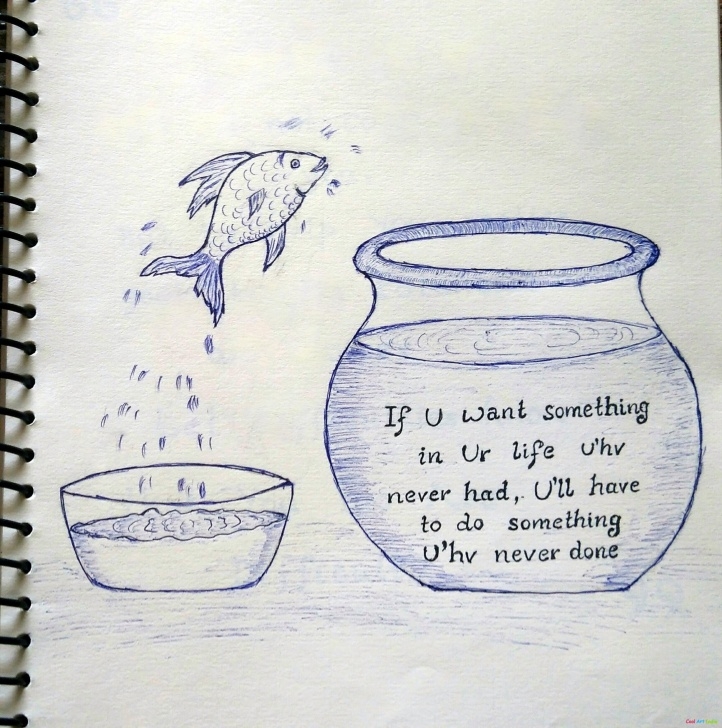 If U want something
in Ur life U'hv
never had, U'll have
to do something
U'hv never done